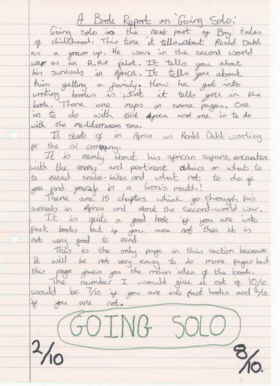 A Book Report on 'Going Solo'.
Going solo is the next part of Boy tales
of childhood. This time it tells about Roald Dahl
as a grown up. He was in the second world
war as an R.A.F pilot. It tells you about
his survivals in Africa. It tells you about
him getting a family. How he got into
writing books is what it tells you in the
book. There are maps on some pages, one
is to do with Africa and one is to do
with the mediterranean sea.
It starts of in Africa as Roald Dahl working
for the oil company.
It is mainly about his african squere encounters
with the enemy and part what on what to
do about snake-bites and what not to do if
you find yourself by a lion's mouth!
There are 15 chapters which go through his
survivals in Africa and about the second-world war.
It is quite a good book if you are into
fact books but if you are not then it is
not very good to read.
This is the only page in this section because
it will be not very easy to do more pages but
this page gives you the main idea of the book.
The number I would give it out of 10 is
would be 7/10 if you are into fact books and 2/10
if you are not.
GOING SOLO
2/10
8/10.